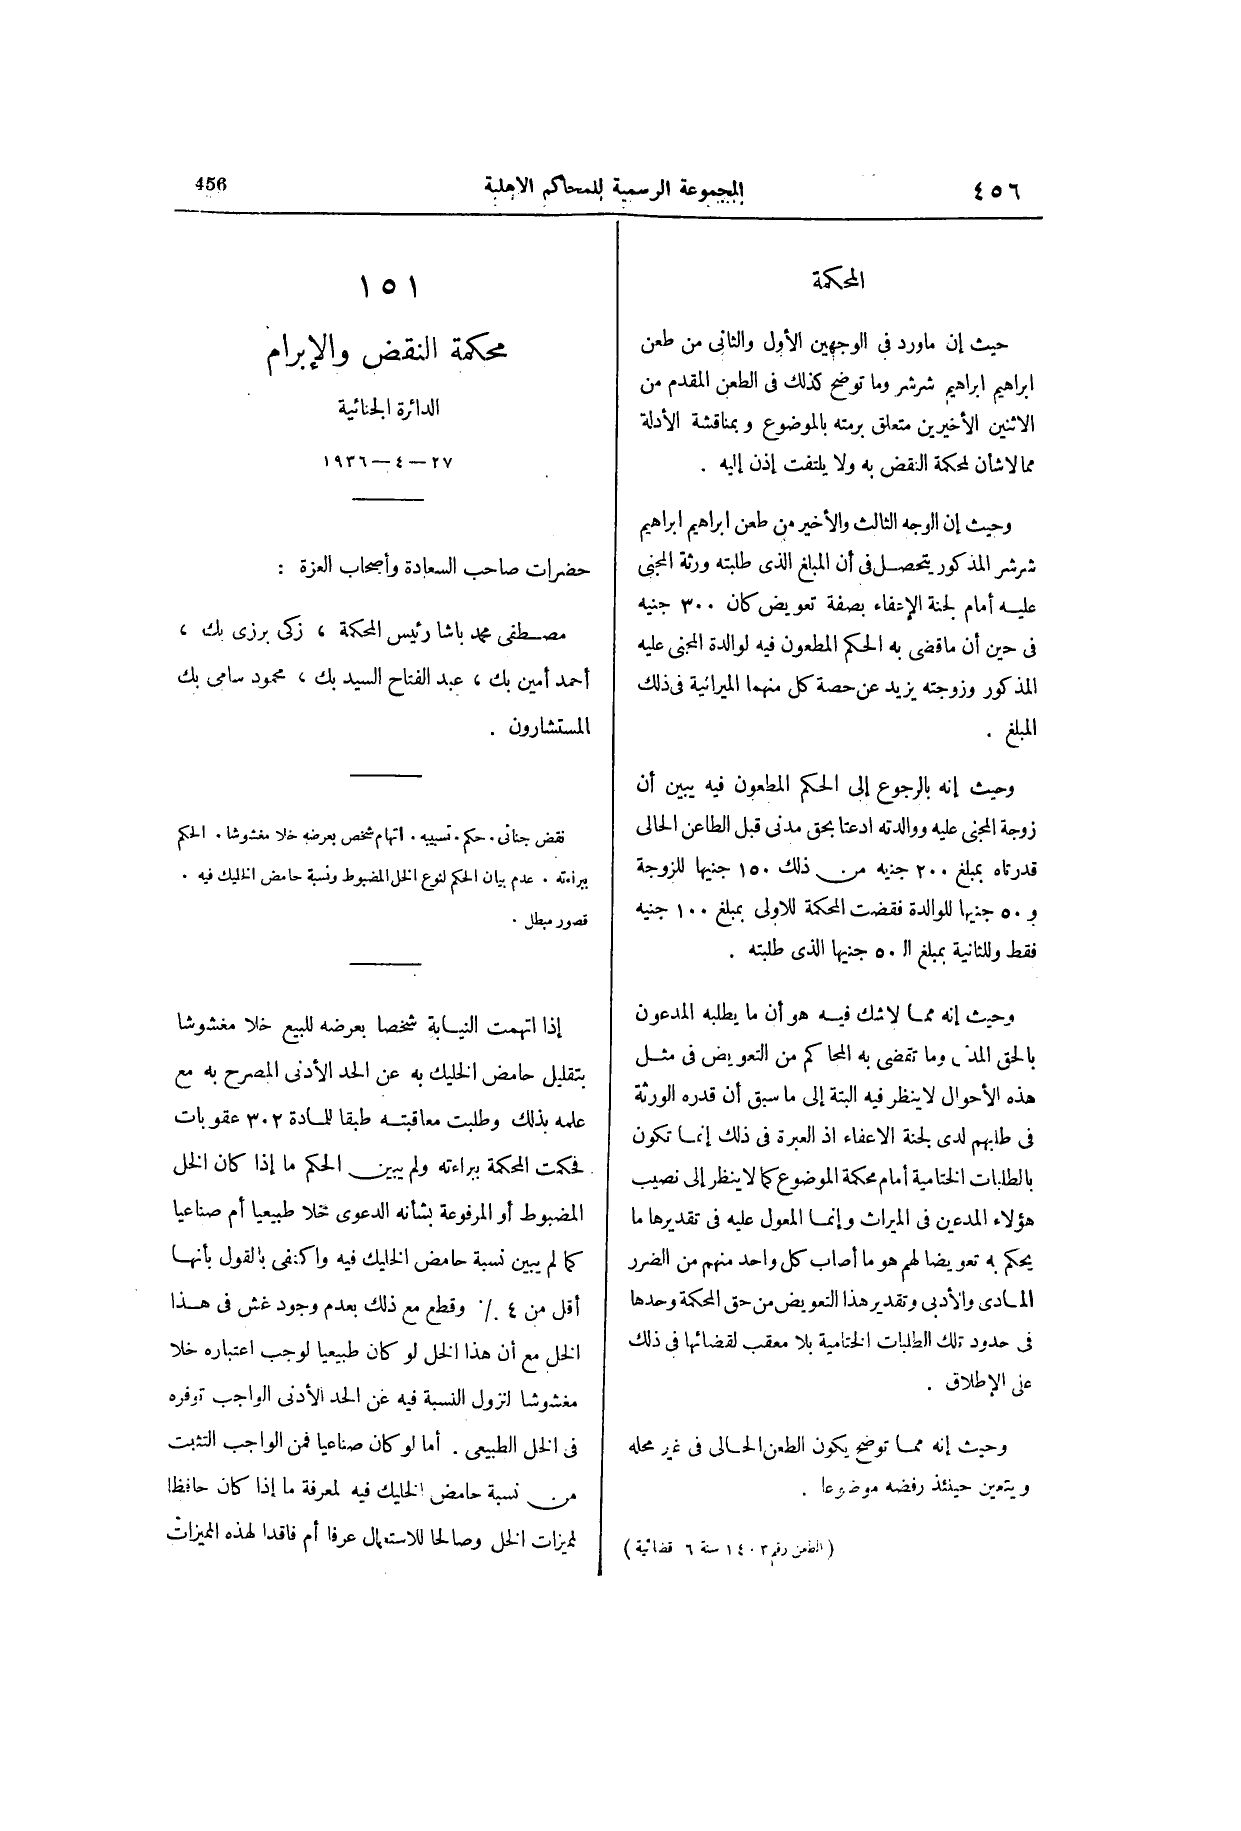 ٤٥٦
المجموعة الرسمية للمحاكم الاهلية
456
المحكمة
حيث إن ماورد فى الوجهين الأول والثانى من طعن
ابراهيم ابراهيم شرشر وما توضح كذلك فى الطعن المقدم من
الاثنين الأخيرين متعلق برمته بالموضوع و بمناقشة الأدلة
مما لاشأن لمحكمة النقض به ولا يلتفت إذن إليه .
وحيث إن الوجه الثالث والأخير من طعن ابراهيم ابراهيم
شرشر المذكور يتحصل فى أن المبلغ الذى طلبته ورثة المجنى
عليه أمام لجنة الإعفاء بصفة تعويض كان ٣٠٠ جنيه
فى حين أن ماقضى به الحكم المطعون فيه لوالدة المجنى عليه
المذكور وزوجته يزيد عن حصة كل منهما الميراثية فى ذلك
المبلغ .
وحيث إنه بالرجوع إلى الحكم المطعون فيه يبين أن
زوجة المجنى عليه ووالدته ادعتا بحق مدنى قبل الطاعن الحالى
قدرتاه بمبلغ ٢٠٠ جنيه من ذلك ١٥٠ جنيها للزوجة
و ٥٠ جنيها للوالدة فقضت المحكمة للاولى بمبلغ ١٠٠ جنيه
فقط وللثانية بمبلغ الـ ٥٠ جنيها الذى طلبته .
وحيث إنه مما لاشك فيه هو أن ما يطلبه المدعون
بالحق المدنى وما تقضى به المحاكم من التعويض فى مثل
هذه الأحوال لاينظر فيه البتة إلى ماسبق أن قدره الورثة
فى طلبهم لدى لجنة الاعفاء اذ العبرة فى ذلك إنما تكون
بالطلبات الختامية أمام محكمة الموضوع كما لاينظر إلى نصيب
هؤلاء المدعين فى الميراث وإنما المعول عليه فى تقديرها ما
يحكم به تعويضا لهم هو ما أصاب كل واحد منهم من الضرر
المادى والأدبى وتقدير هذا التعويض من حق المحكمة وحدها
فى حدود تلك الطلبات الختامية بلا معقب لقضائها فى ذلك
على الإطلاق .
وحيث إنه مما توضح يكون الطعن الحالى فى غير محله
ويتعين حينئذ رفضه موضوعا .
( الطعن رقم ١٤٠٣ سنة ٦ قضائية )
١٥١
محكمة النقض والإبرام
الدائرة الجنائية
٢٧ — ٤ — ١٩٣٦
حضرات صاحب السعادة وأصحاب العزة :
مصطفى محمد باشا رئيس المحكمة ، زكى برزى بك ،
أحمد أمين بك ، عبد الفتاح السيد بك ، محمود سامى بك
المستشارون .
نقض جنائى . حكم . تسبيبه . اتهام شخص بعرضه خلا مغشوشا . الحكم
ببراءته . عدم بيان الحكم لنوع الخل المضبوط ونسبة حامض الخليك فيه .
قصور مبطل .
إذا اتهمت النيابة شخصا بعرضه للبيع خلا مغشوشا
بتقليل حامض الخليك به عن الحد الأدنى المصرح به مع
علمه بذلك وطلبت معاقبته طبقا للمادة ٣٠٢ عقوبات
فحكمت المحكمة ببراءته ولم يبين الحكم ما إذا كان الخل
المضبوط أو المرفوعة بشأنه الدعوى خلا طبيعيا أم صناعيا
كما لم يبين نسبة حامض الخليك فيه واكتفى بالقول بأنها
أقل من ٤ ٪ وقطع مع ذلك بعدم وجود غش فى هذا
الخل مع أن هذا الخل لو كان طبيعيا لوجب اعتباره خلا
مغشوشا لنزول النسبة فيه عن الحد الأدنى الواجب توفره
فى الخل الطبيعى . أما لو كان صناعيا فمن الواجب التثبت
من نسبة حامض الخليك فيه لمعرفة ما إذا كان حافظا
لميزات الخل وصالحا للاستعمال عرفا أم فاقدا لهذه الميزات